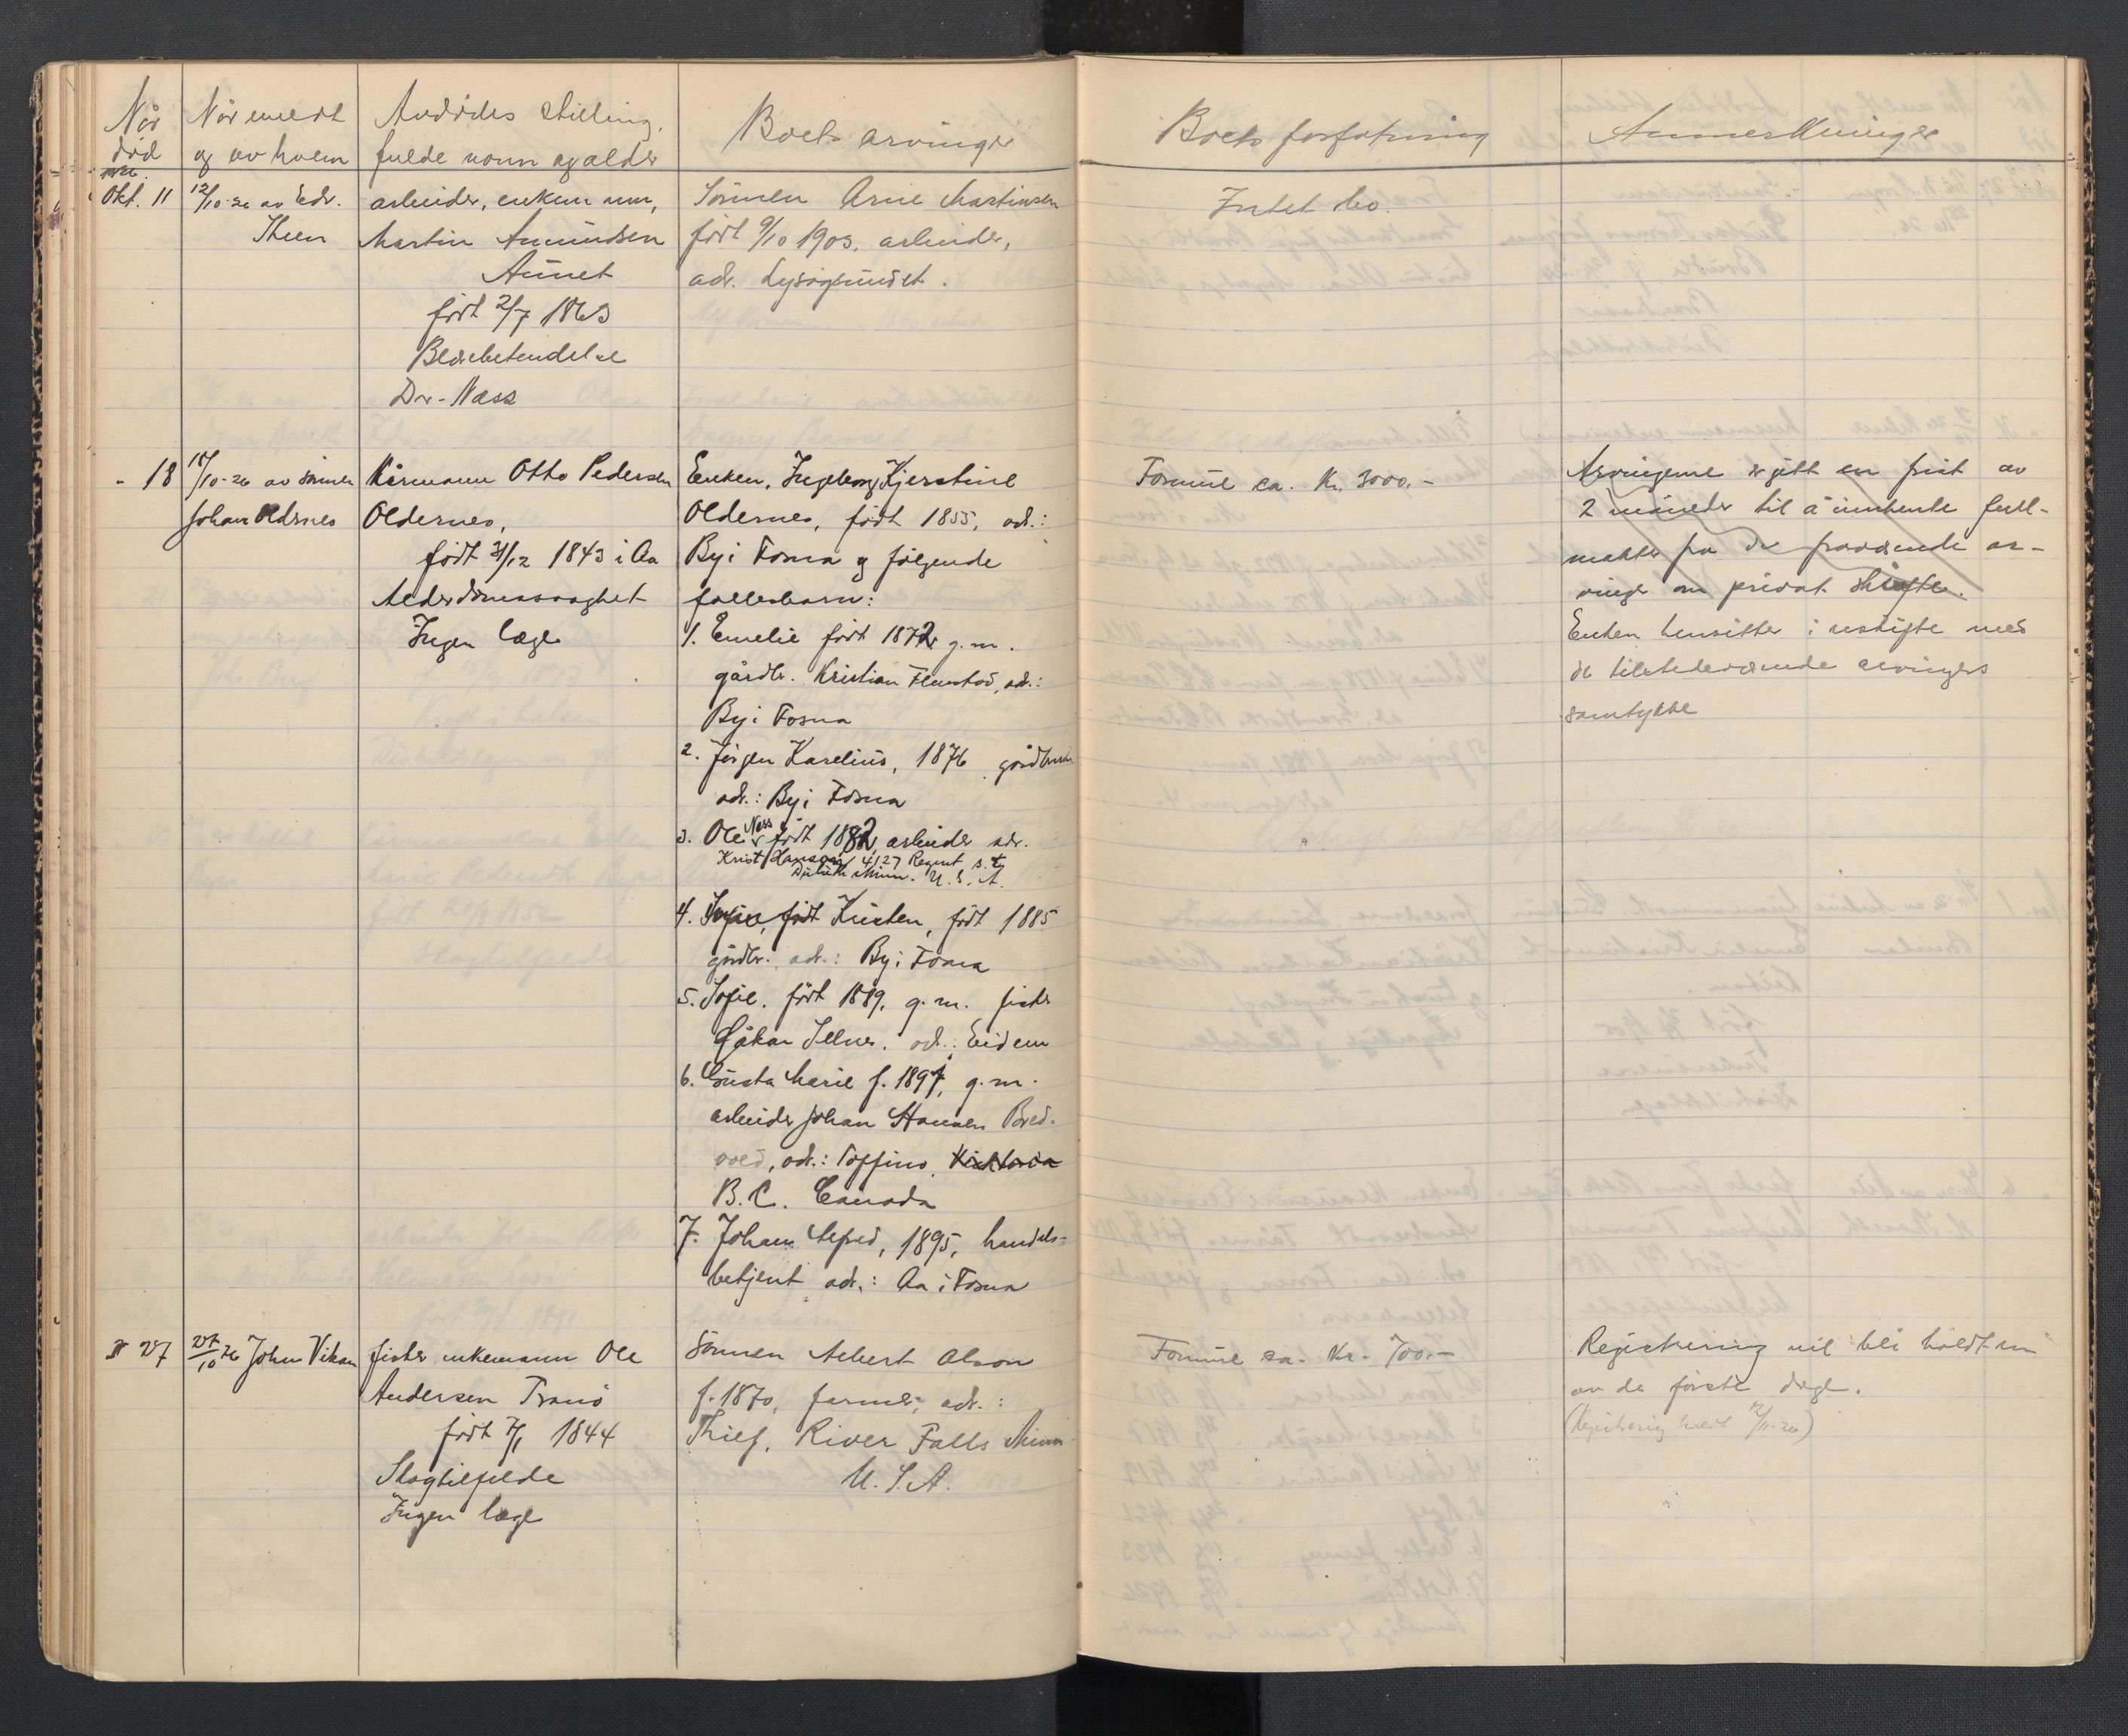 Når
død
Når meldt
og av hvem
Avdødes stilling,
fulde navn og alder
Boets arvinger
Boets forfatning
Anmerkninger
1926.
Okt. 11
12/10-26 av Edv.
arbeider, enkemann,
Martin Amundsen
Aunet
født 2/7 1863
Blærebetendelse
Dr. Næss
Sønnen Arne Martinsen
født 9/10 1903, arbeider,
adr. Lysøysundet.
Intet bo.
" 18
18/10-26 av sønnen
Johan Oldernes
Kårmann Otto Pedersen
Oldernes,
født 31/12 1843 i Aa
Alderdomssvaghet
Ingen læge
Enken, Ingeborg Kjerstine
Oldernes, født 1855, adr.:
By i Fosna og følgende
fellesbarn:
1. Emelie født 1872 g.m.
gårdbr. Kristian Flenstad, adr.:
By i Fosna
2. Jørgen Karelius, 1876 gårdbruker
adr.: By i Fosna
3. Ole Næss født 1882, arbeider adr.
Krist Hanson 4127 Regent s.t.
Duluth Minn. U.S.A.
4. Sofie, født Kristen, født 1885
gårdbr. adr.: By i Fosna
5. Sofie, født 1889, g.m. fisker
Håkon Selnes. adr.: Eidem
6. Gusta Marie f. 1897, g.m.
arbeider Johan Hansen Bred-
vold, adr.: Toffino, Viktoria
B.C. Canada
7. Johan Alfred, 1895, handels-
betjent adr.: Aa i Fosna
Formue ca. Kr. 3000.-
Arvingerne er gitt en frist av
2 måneder til å innhente full-
makter fra de fraværende ar-
vinger om privat skifte.
Enken hensitter i uskifte med
de tilstedeværende arvingers
samtykke
" 27
27/10 26 John Vikan
fisker, enkemann Ole
Andersen Tranø
født 7/1 1844
Slagtilfelde
Ingen læge
Sønnen Albert Olson
f. 1870, farmer, adr.:
Thief, River Falls Minn
U.S.A.
Formue ca. Kr. 700.-
Registrering vil bli holdt en
av de første dage.
(Registrering holdt 12/11-26)